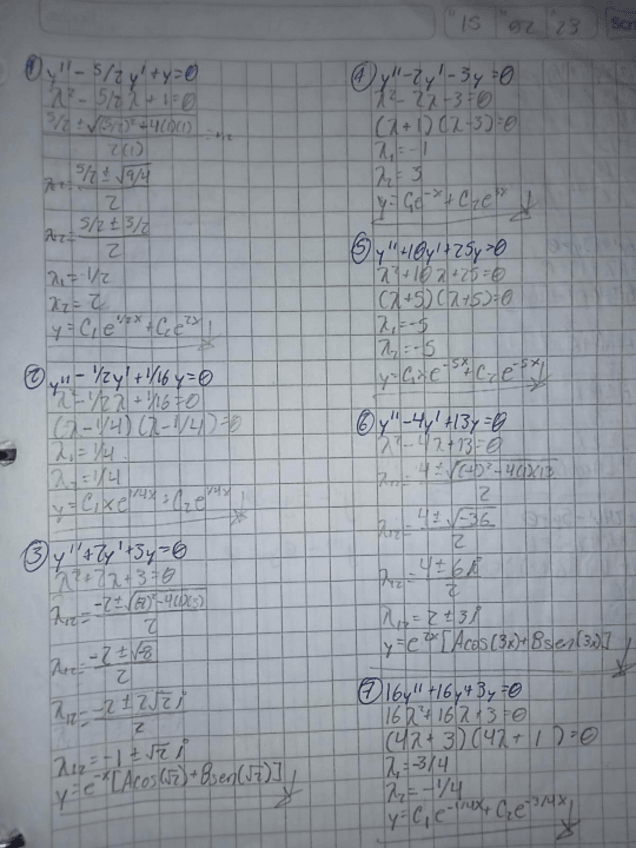 15 02 23
① y'' - 5/2 y' + y = 0
λ² - 5/2 λ + 1 = 0
5/2 ± √(5/2)² + 4(1)(1) / 2(1) = λ₁₂
λ₁₂ = 5/2 ± √9/4 / 2
λ₁₂ = 5/2 ± 3/2 / 2
λ₁ = 1/2
λ₂ = 2
y = C₁e^1/2x + C₂e^2x
② y'' - 1/2y' + 1/16 y = 0
λ² - 1/2 λ + 1/16 = 0
(λ - 1/4)(λ - 1/4) = 0
λ₁ = 1/4
λ₂ = 1/4
y = C₁xe^1/4x + C₂e^1/4x
③ y'' + 2y' + 3y = 0
λ² + 2λ + 3 = 0
λ₁₂ = -2 ± √(2)² - 4(1)(3) / 2
λ₁₂ = -2 ± √-8 / 2
λ₁₂ = -2 ± 2√2 i / 2
λ₁₂ = -1 ± √2 i
y = e^-x [Acos(√2) + Bsen(√2)]
④ y'' - 2y' - 3y = 0
λ² - 2λ - 3 = 0
(λ + 1)(λ - 3) = 0
λ₁ = -1
λ₂ = 3
y = C₁e^-x + C₂e^3x
⑤ y'' + 10y' + 25y = 0
λ² + 10λ + 25 = 0
(λ + 5)(λ + 5) = 0
λ₁ = -5
λ₂ = -5
y = C₁xe^-5x + C₂e^-5x
⑥ y'' - 4y' + 13y = 0
λ² - 4λ + 13 = 0
λ₁₂ = 4 ± √(-4)² - 4(1)(13) / 2
λ₁₂ = 4 ± √-36 / 2
λ₁₂ = 4 ± 6i / 2
λ₁₂ = 2 ± 3i
y = e^2x [Acos(3x) + Bsen(3x)]
⑦ 16y'' + 16y + 3y = 0
16λ² + 16λ + 3 = 0
(4λ + 3)(4λ + 1) = 0
λ₁ = -3/4
λ₂ = -1/4
y = C₁e^-1/4x + C₂e^-3/4x